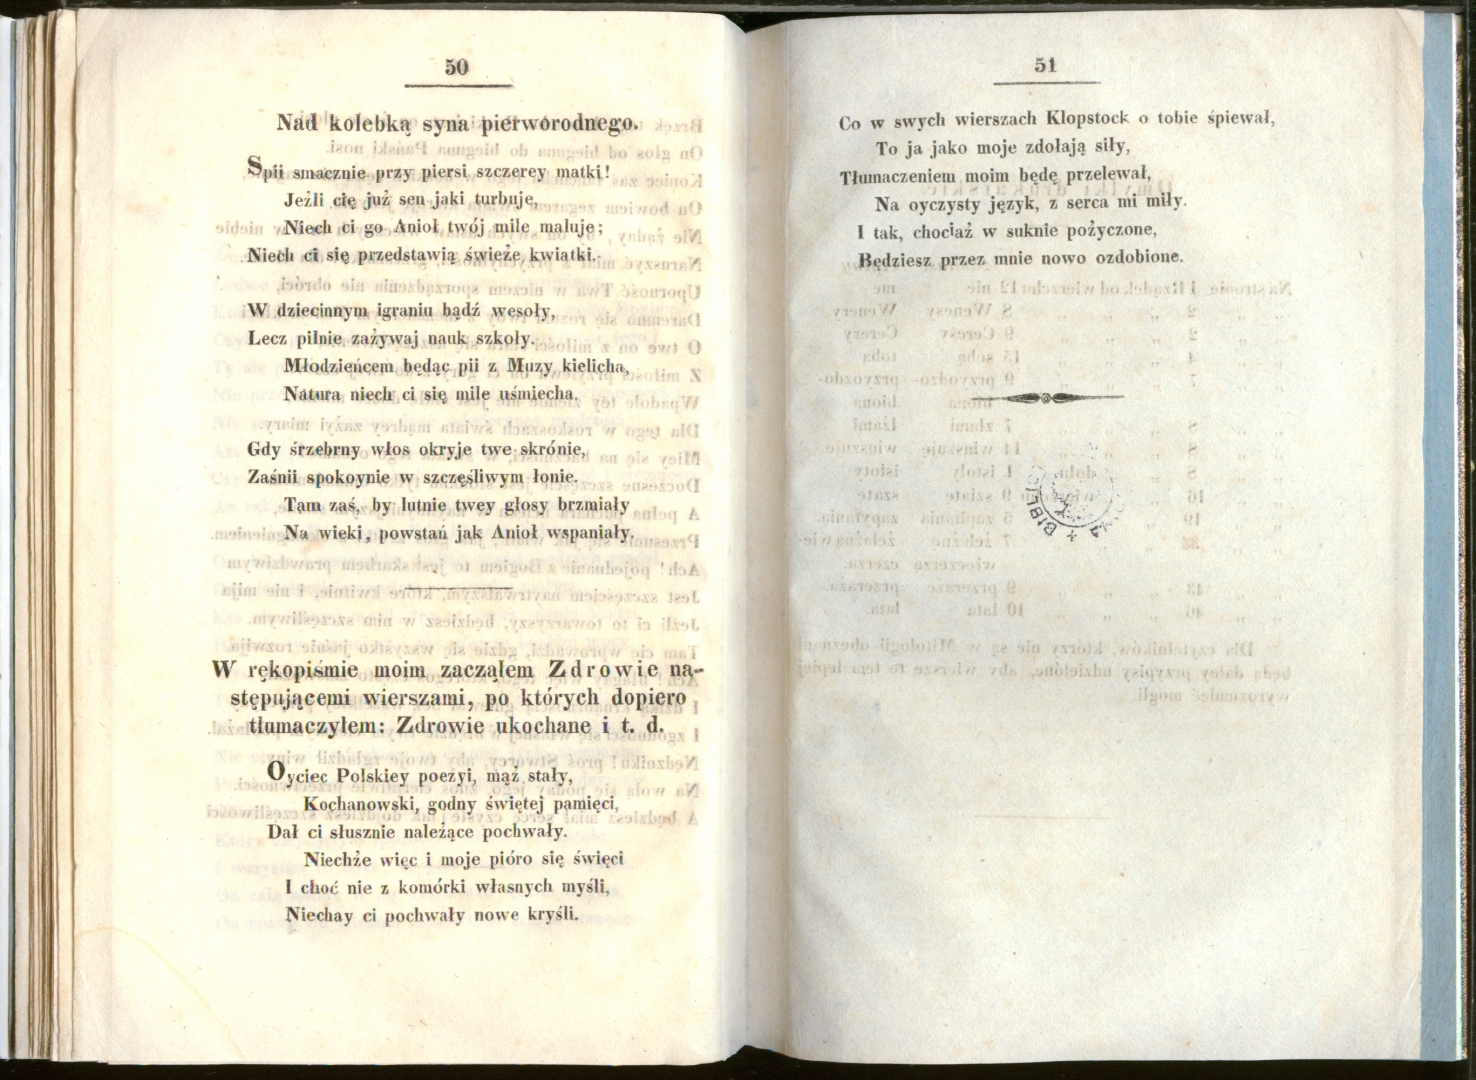 50
Nad kolebką syna pierworodnego.
Spii smacznie przy piersi szczerey matki!
Jeźli cię już sen jaki turbuje,
Niech ci go Anioł twój mile maluje;
Niech ci się przedstawią świeże kwiatki.
W dziecinnym igraniu bądź wesoły,
Lecz pilnie zażywaj nauk szkoły.
Młodzieńcem będąc pii z Muzy kielicha,
Natura niech ci się mile uśmiecha.
Gdy śrzebrny włos okryje twe skrónie,
Zaśnii spokoynie w szczęśliwym łonie.
Tam zaś, by lutnie twey głosy brzmiały
Na wieki, powstań jak Anioł wspaniały.
W rękopiśmie moim zacząłem Zdrowie na-
stępującemi wierszami, po których dopiero
tłumaczyłem: Zdrowie ukochane i t. d.
Oyciec Polskiey poezyi, mąż stały,
Kochanowski, godny świętej pamięci,
Dał ci słusznie należące pochwały.
Niechże więc i moje pióro się święci
I choć nie z komórki własnych myśli,
Niechay ci pochwały nowe kryśli.
51
Co w swych wierszach Klopstock o tobie śpiewał,
To ja jako moje zdołają siły,
Tłumaczeniem moim będę przelewał,
Na oyczysty język, z serca mi miły.
I tak, chociaż w suknie pożyczone,
Będziesz przez mnie nowo ozdobione.